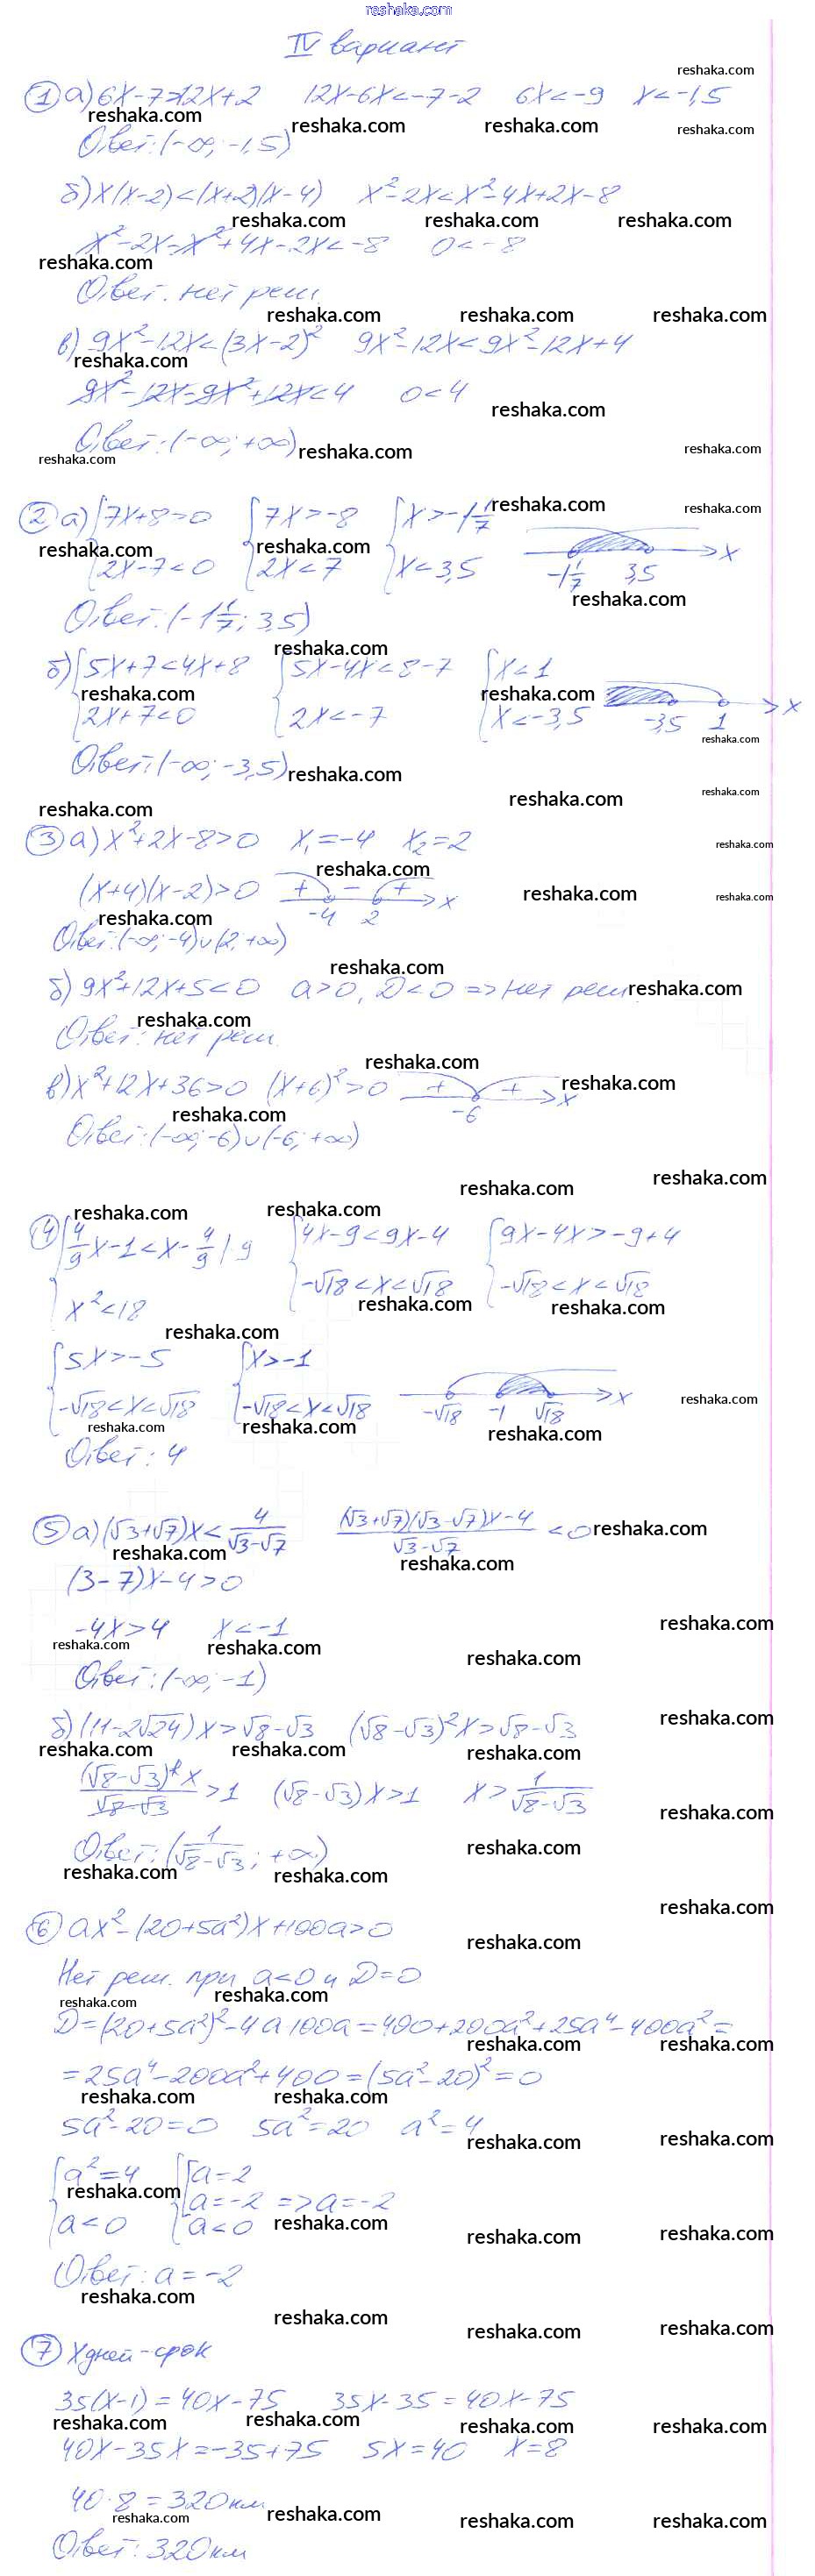 reshaka.com
IV вариант
1 а) 6x-7>12x+2 12x-6x<-7-2 6x<-9 x<-1,5
Ответ: (-∞; -1,5)
б) x(x-2)<(x+2)(x-4) x²-2x<x²-4x+2x-8
x²-2x-x²+4x-2x<-8 0<-8
Ответ: нет реш.
в) 9x²-12x<(3x-2)² 9x²-12x<9x²-12x+4
9x²-12x-9x²+12x<4 0<4
Ответ: (-∞; +∞)
2 а) {7x+8>0 {7x>-8 {x>-1 1/7
{2x-7<0 {2x<7 {x<3,5 -1 1/7 3,5 x
Ответ: (-1 1/7; 3,5)
б) {5x+7<4x+8 {5x-4x<8-7 {x<1
{2x+7<0 {2x<-7 {x<-3,5 -3,5 1 x
Ответ: (-∞; -3,5)
3 а) x²+2x-8>0 x₁=-4 x₂=2
(x+4)(x-2)>0 + - + -4 2 x
Ответ: (-∞; -4)∪(2; +∞)
б) 9x²+12x+5<0 a>0, D<0 => нет реш.
Ответ: нет реш.
в) x²+12x+36>0 (x+6)²>0 + + -6 x
Ответ: (-∞; -6)∪(-6; +∞)
4 {4/9x-1<x-4/9 | 9 {4x-9<9x-4 {9x-4x>-9+4
{x²<18 {-√18<x<√18 {-√18<x<√18
{5x>-5 {x>-1
{-√18<x<√18 {-√18<x<√18 -√18 -1 √18 x
Ответ: 4
5 а) (√3+√7)x<4/(√3-√7) ((√3+√7)(√3-√7)x-4)/(√3-√7)<0
(3-7)x-4>0
-4x>4 x<-1
Ответ: (-∞; -1)
б) (11-2√24)x>√8-√3 (√8-√3)²x>√8-√3
(√8-√3)²x/(√8-√3)>1 (√8-√3)x>1 x>1/(√8-√3)
Ответ: (1/(√8-√3); +∞)
6 ax²-(20+5a²)x+100a>0
Нет реш. при a<0 и D=0
D=(20+5a²)²-4a·100a=400+200a²+25a⁴-400a²=
=25a⁴-200a²+400=(5a²-20)²=0
5a²-20=0 5a²=20 a²=4
{a²=4 {[a=2
[a=-2 => a=-2
{a<0 {a<0
Ответ: a=-2
7 x дней - срок
35(x-1)=40x-75 35x-35=40x-75
40x-35x=-35+75 5x=40 x=8
40·8=320км
Ответ: 320км